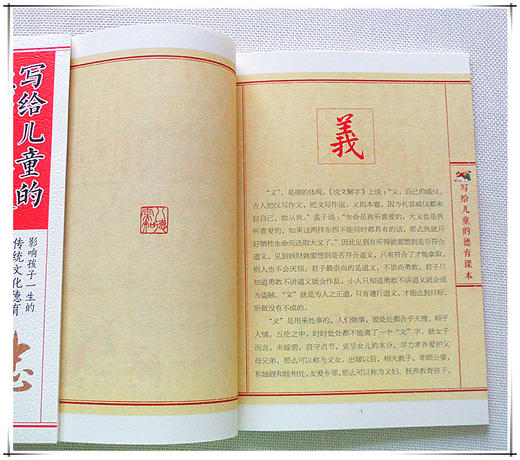 写给儿童的
影响孩子一生的
传统文化德育
義
“义”，是德的体现。《说文解字》上说：“义，自己的威仪。
古人把仪写作义，把义写作谊。义的本意，因为礼容威仪都来
自自己，故从我。”孟子说：“生命是我所喜爱的，大义也是我
所喜爱的，如果这两样东西不能同时都具有的话，那么我就只
好牺牲生命而选取大义了。”因此见到有所得就要想到是否符合
道义，见到钱财就要想到是否符合道义，只有符合了才能拿取，
别人也不会厌烦。君子最崇尚的是道义，不崇尚勇敢，君子只
知道勇敢不讲道义就会作乱，小人只知道勇敢不讲道义就会成
为盗贼。“义”就是为人之正道，只有遵行道义，才能达到目标，
所做没有不成的。
“义”是用来处事的，人们做事，要处处都合乎天理，顺乎
人情。五伦之中，时时处处都不能离了一个“义”字。就女子
而言，未嫁前，自守贞节，克尽女儿的本分，尽力孝养爱护父
母兄弟，那么可以称为义女。出嫁以后，相夫教子，孝顺公婆，
和妯娌和睦相处，友爱乡邻，那么可以称为义妇。抚养教育孩子，
写给儿童的德育课本
1